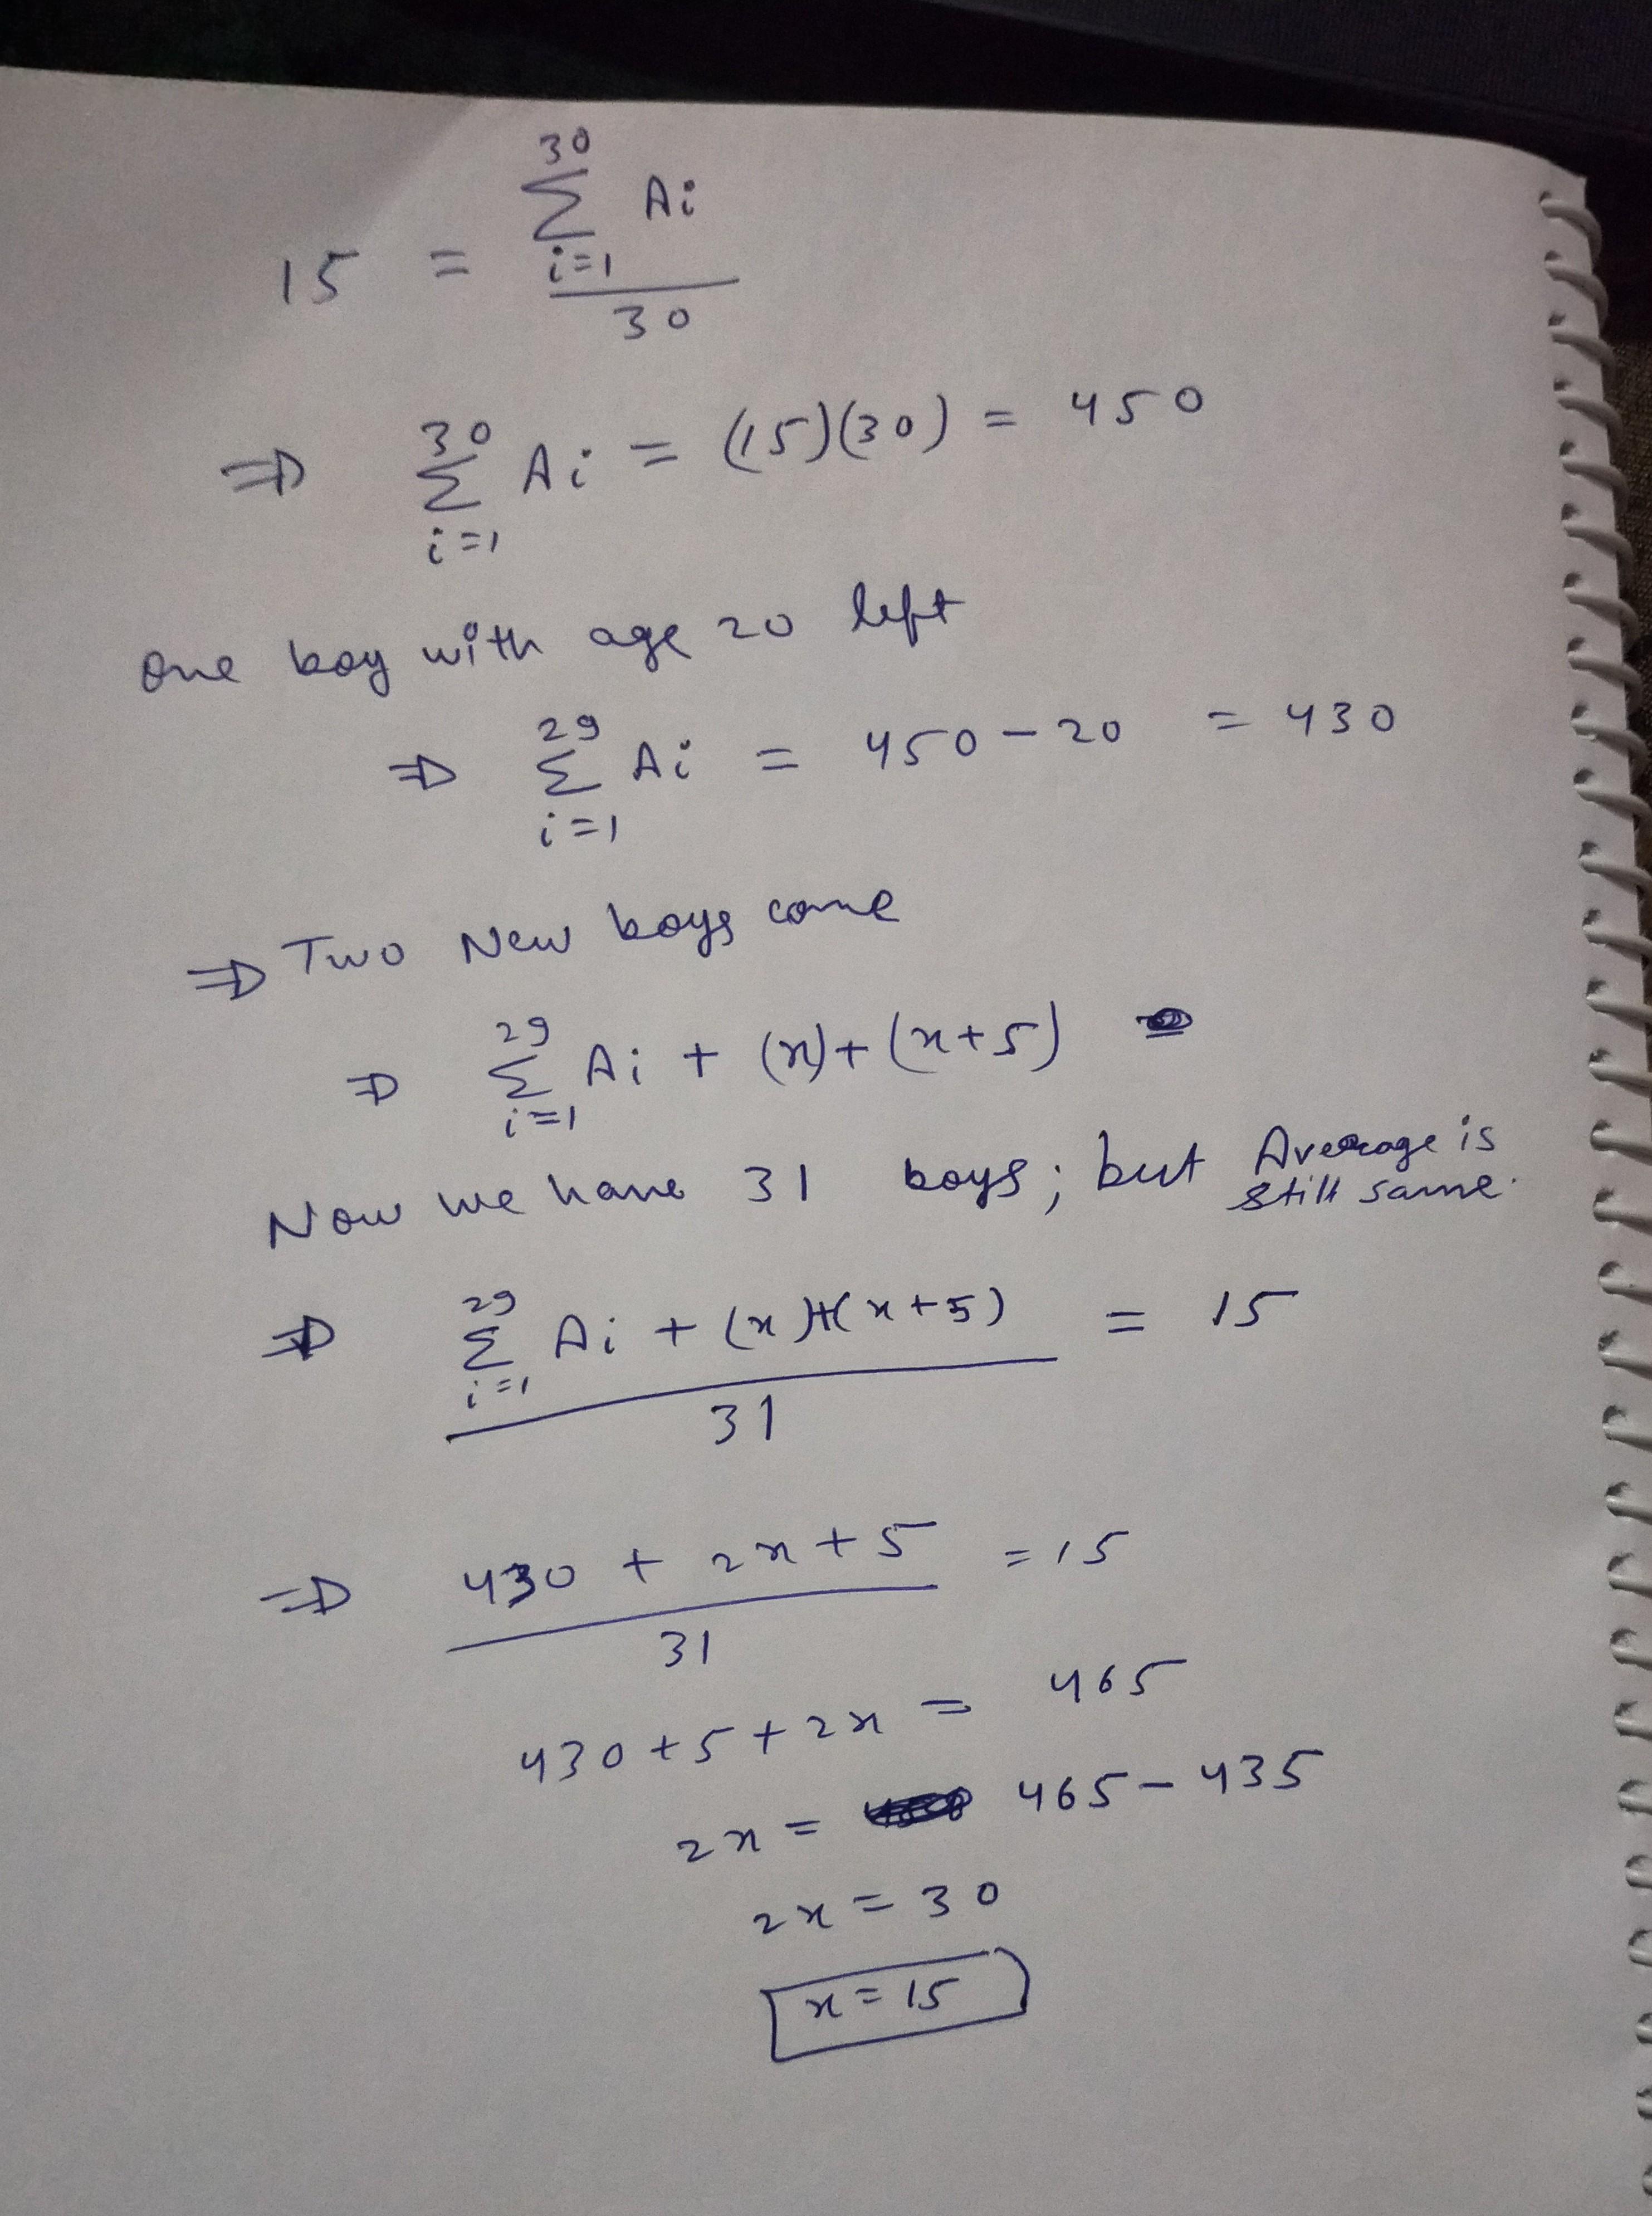 15 = 30 Σ i=1 Ai / 30
⇒ 30 Σ i=1 Ai = (15)(30) = 450
One boy with age 20 left
⇒ 29 Σ i=1 Ai = 450 - 20 = 430
⇒ Two New boys come
⇒ 29 Σ i=1 Ai + (x) + (x+5)
Now we have 31 boys; but Average is still same.
⇒ 29 Σ i=1 Ai + (x)+(x+5) / 31 = 15
⇒ 430 + 2x + 5 / 31 = 15
430 + 5 + 2x = 465
2x = 465 - 435
2x = 30
x = 15